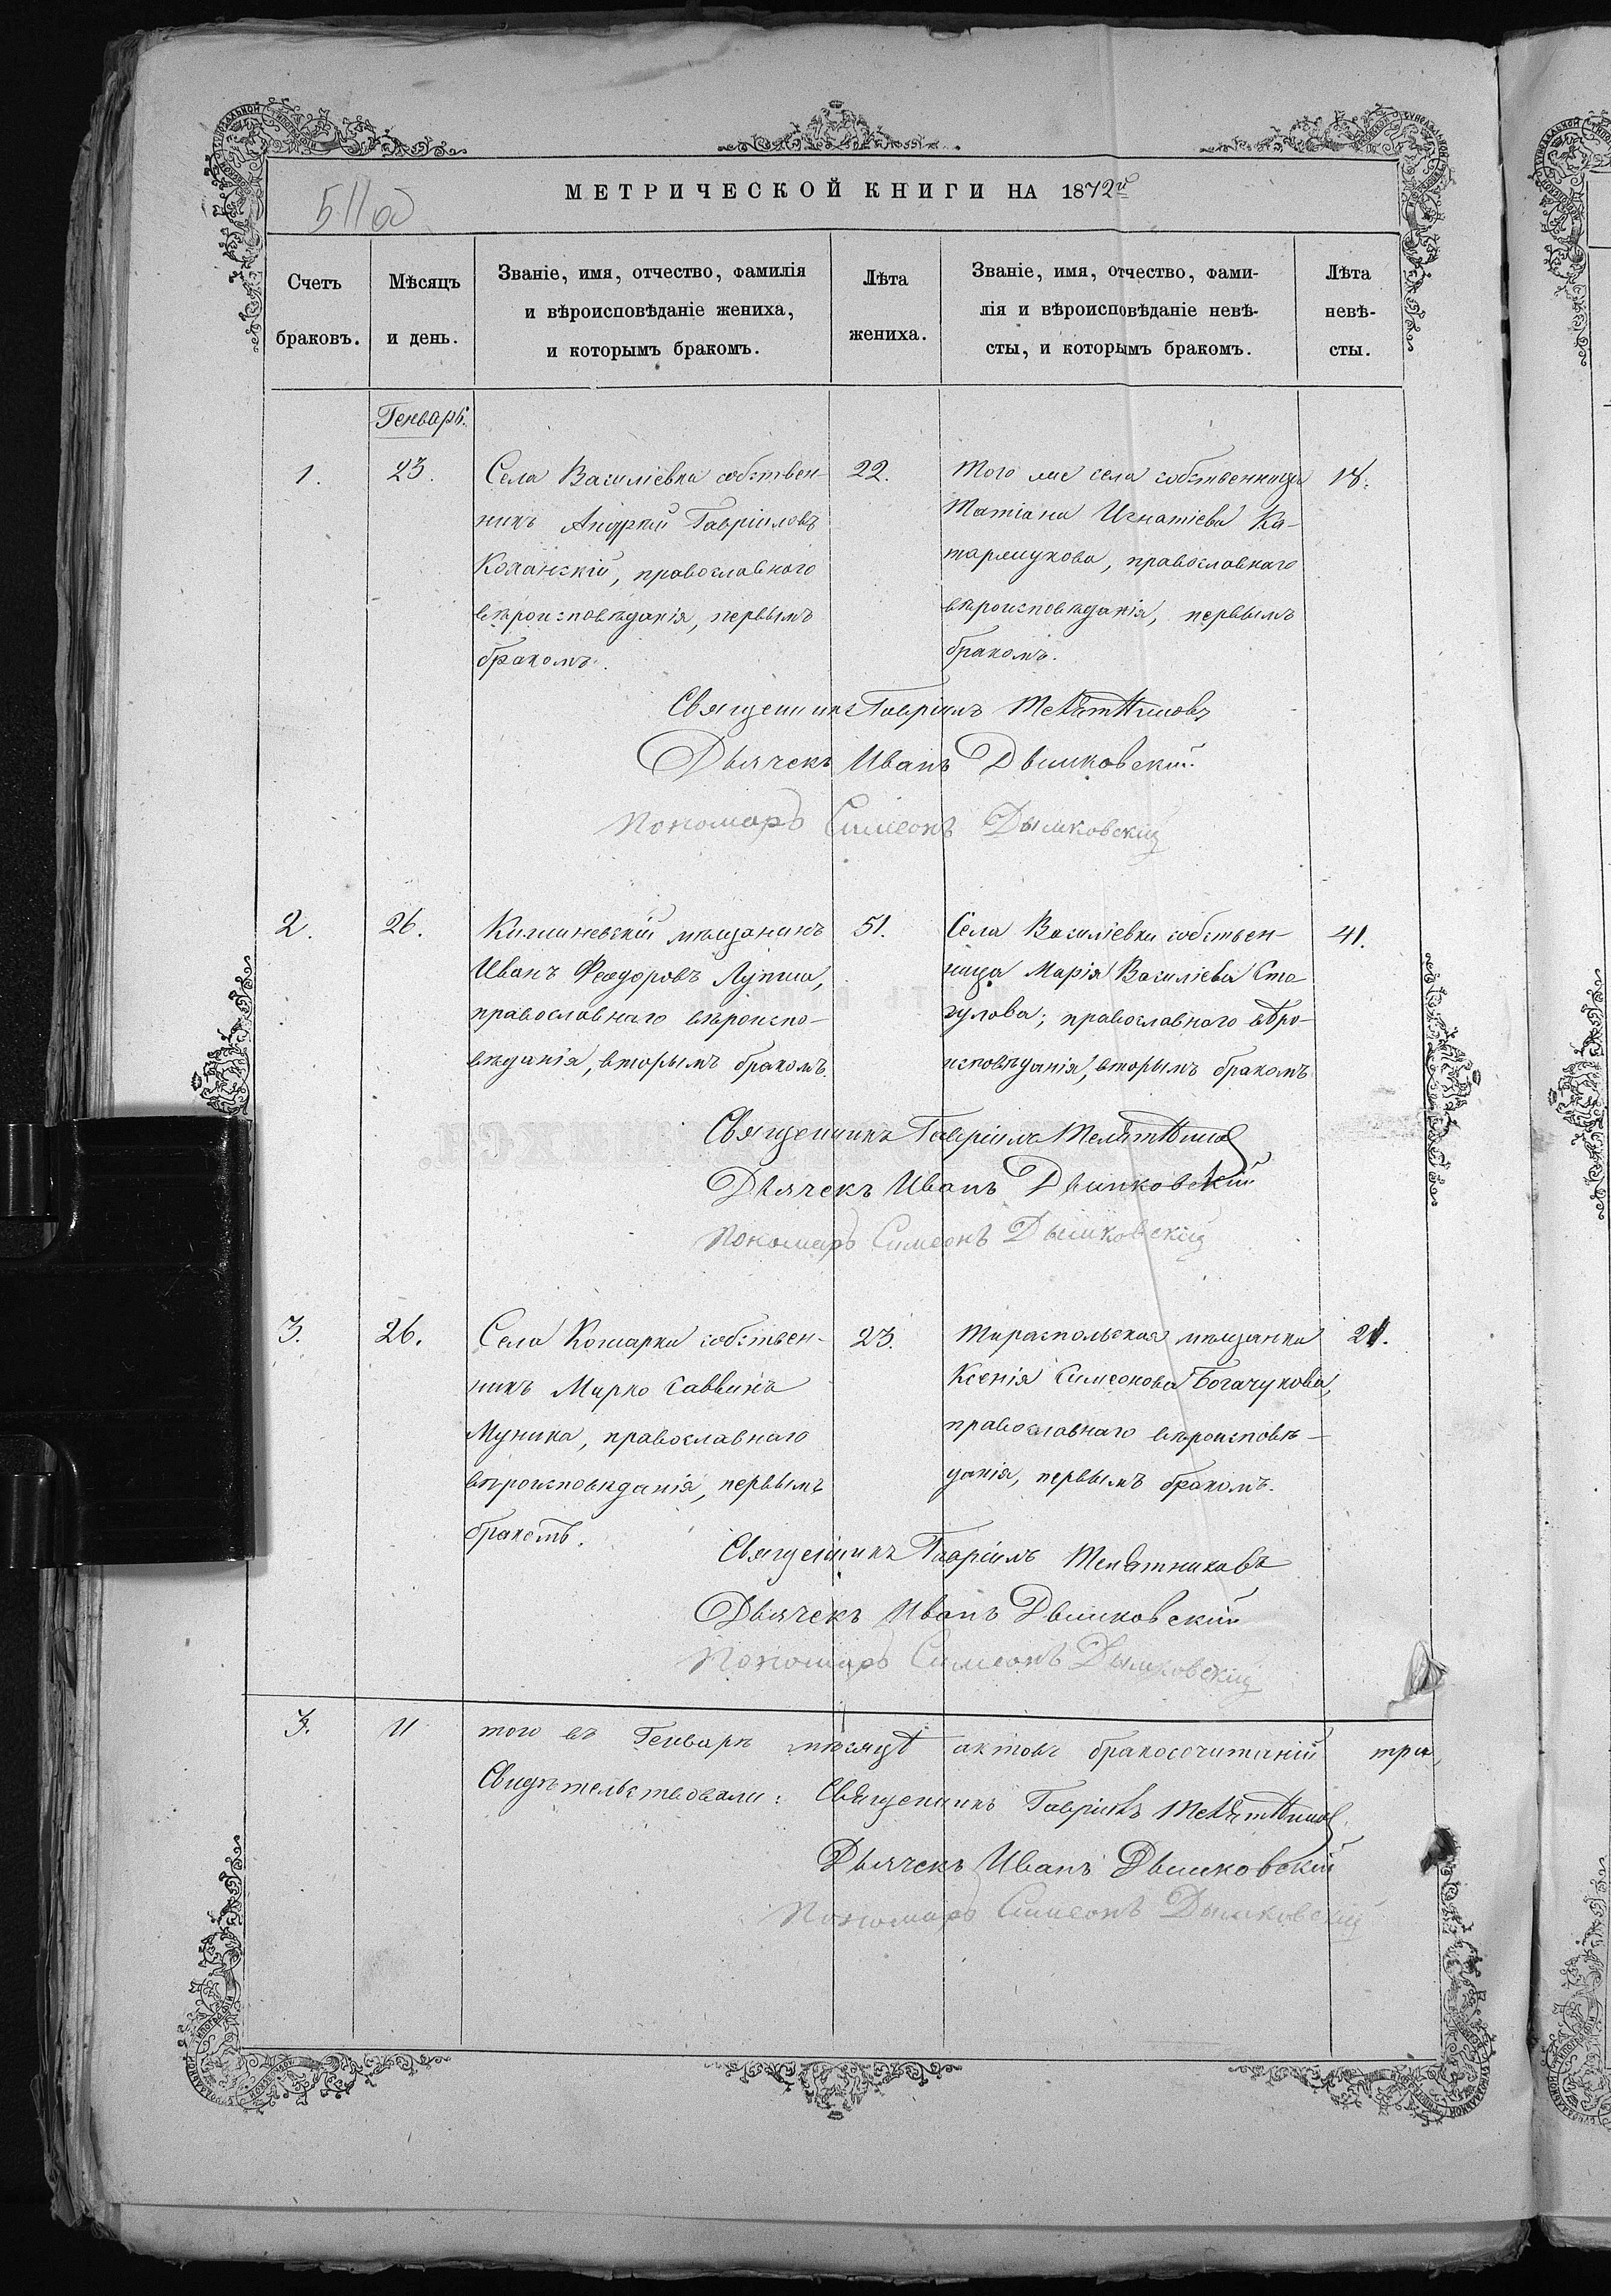 МЕТРИЧЕСКОЙ КНИГИ НА 1872й
511об
Счетъ браковъ.
Мѣсяцъ и день.
Званіе, имя, отчество, фамилія
и вѣроисповѣданіе жениха,
и которымъ бракомъ.
Лѣта жениха.
Званіе, имя, отчество, фами-
лія и вѣроисповѣданіе невѣ-
сты, и которымъ бракомъ.
Лѣта невѣ-
сты.
Генварь.
1. 23.
Села Василіевки собствен-
никъ Андрей Гавріиловъ
Коханскій, православнаго
вѣроисповѣданія, первымъ
бракомъ.
22.
Того же села собственница
Татіана Игнатіева Ка-
тармукова, православнаго
вѣроисповѣданія, первымъ
бракомъ.
18.
Священникъ Гавріилъ Телятниковъ
Дьячекъ Иванъ Дымковскій
Пономарь Симеонъ Дымковскій
2. 26.
Кишиневскій мѣщанинъ
Иванъ Феодоровъ Лупша,
православнаго вѣроиспо-
вѣданія, вторымъ бракомъ.
51.
Села Василіевки собствен-
ница Марія Василіева Сто
гулова; православнаго вѣро-
исповѣданія, вторымъ бракомъ.
41.
Священникъ Гавріилъ Телятников
Дьячекъ Иванъ Дымковскій
Пономарь Симеонъ Дымковскій
3. 26.
Села Кошарки собствен-
никъ Марко Саввинъ
Муника, православнаго
вѣроисповѣданія, первымъ
бракомъ.
23.
Тираспольская мѣщанка
Ксенія Симеонова Богачукова,
православнаго вѣроисповѣ-
данія, первымъ бракомъ.
21.
Священникъ Гавріилъ Телятниковъ
Дьячекъ Иванъ Дымковскій
Пономарь Симеонъ Дымковскій
3. И того въ Генварѣ мѣсяцѣ актовъ бракосочитаній три,
Свидѣтельствовали: Священникъ Гавріилъ Телятников
Дьячекъ Иванъ Дымковскій
Пономарь Симеонъ Дымковскій